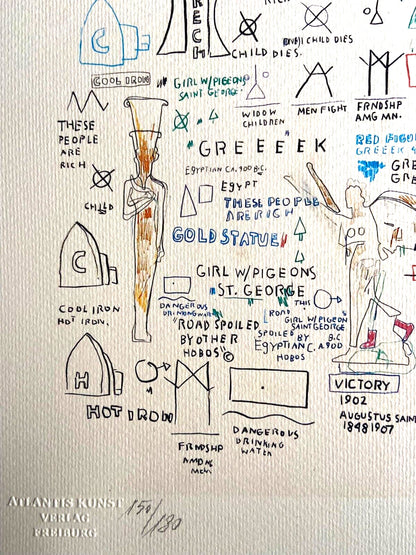 C
R
E
C
H
CHILD DIES.
CHILD DIES
COOL IRON
GIRL W/PIGEONS
SAINT GEORGE.
WIDOW
CHILDREN
MEN FIGHT
FRNDSHP
AMG MN.
THESE
PEOPLE
ARE
RICH
"GREEEEK
EGYPTIAN CA. 900 B.C.
EGYPT
CHILD
THESE PEOPLE
ARE RICH
GOLD STATUE
C
GIRL W/PIGEONS
ST. GEORGE
THIS
COOL IRON
HOT IRON.
DANGEROUS
DRINKING WATER
"ROAD SPOILED
BY OTHER
HOBOS"©
ROAD
GIRL W/PIGEON
SAINT GEORGE
SPOILED BY B.C.
EGYPTIAN C. A.900
HOBOS
H
HOT IRON
VICTORY
1902
AUGUSTUS SAIN
1848 1907
FRNDSHP
AMONG
MEN
DANGEROUS
DRINKING
WATER
ATLANTIS KUNST
VERLAG
FREIBURG
150/180